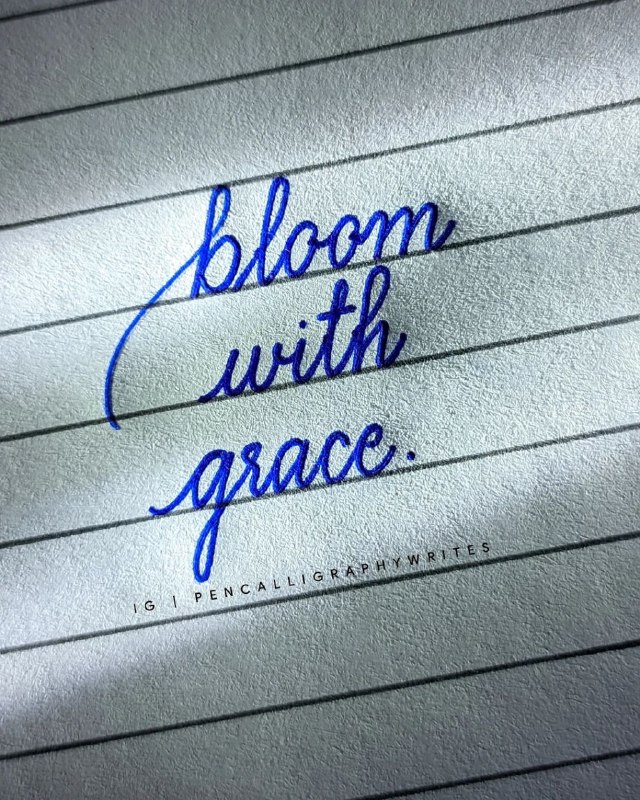 bloom
with
grace.
IG | PENCALLIGRAPHYWRITES